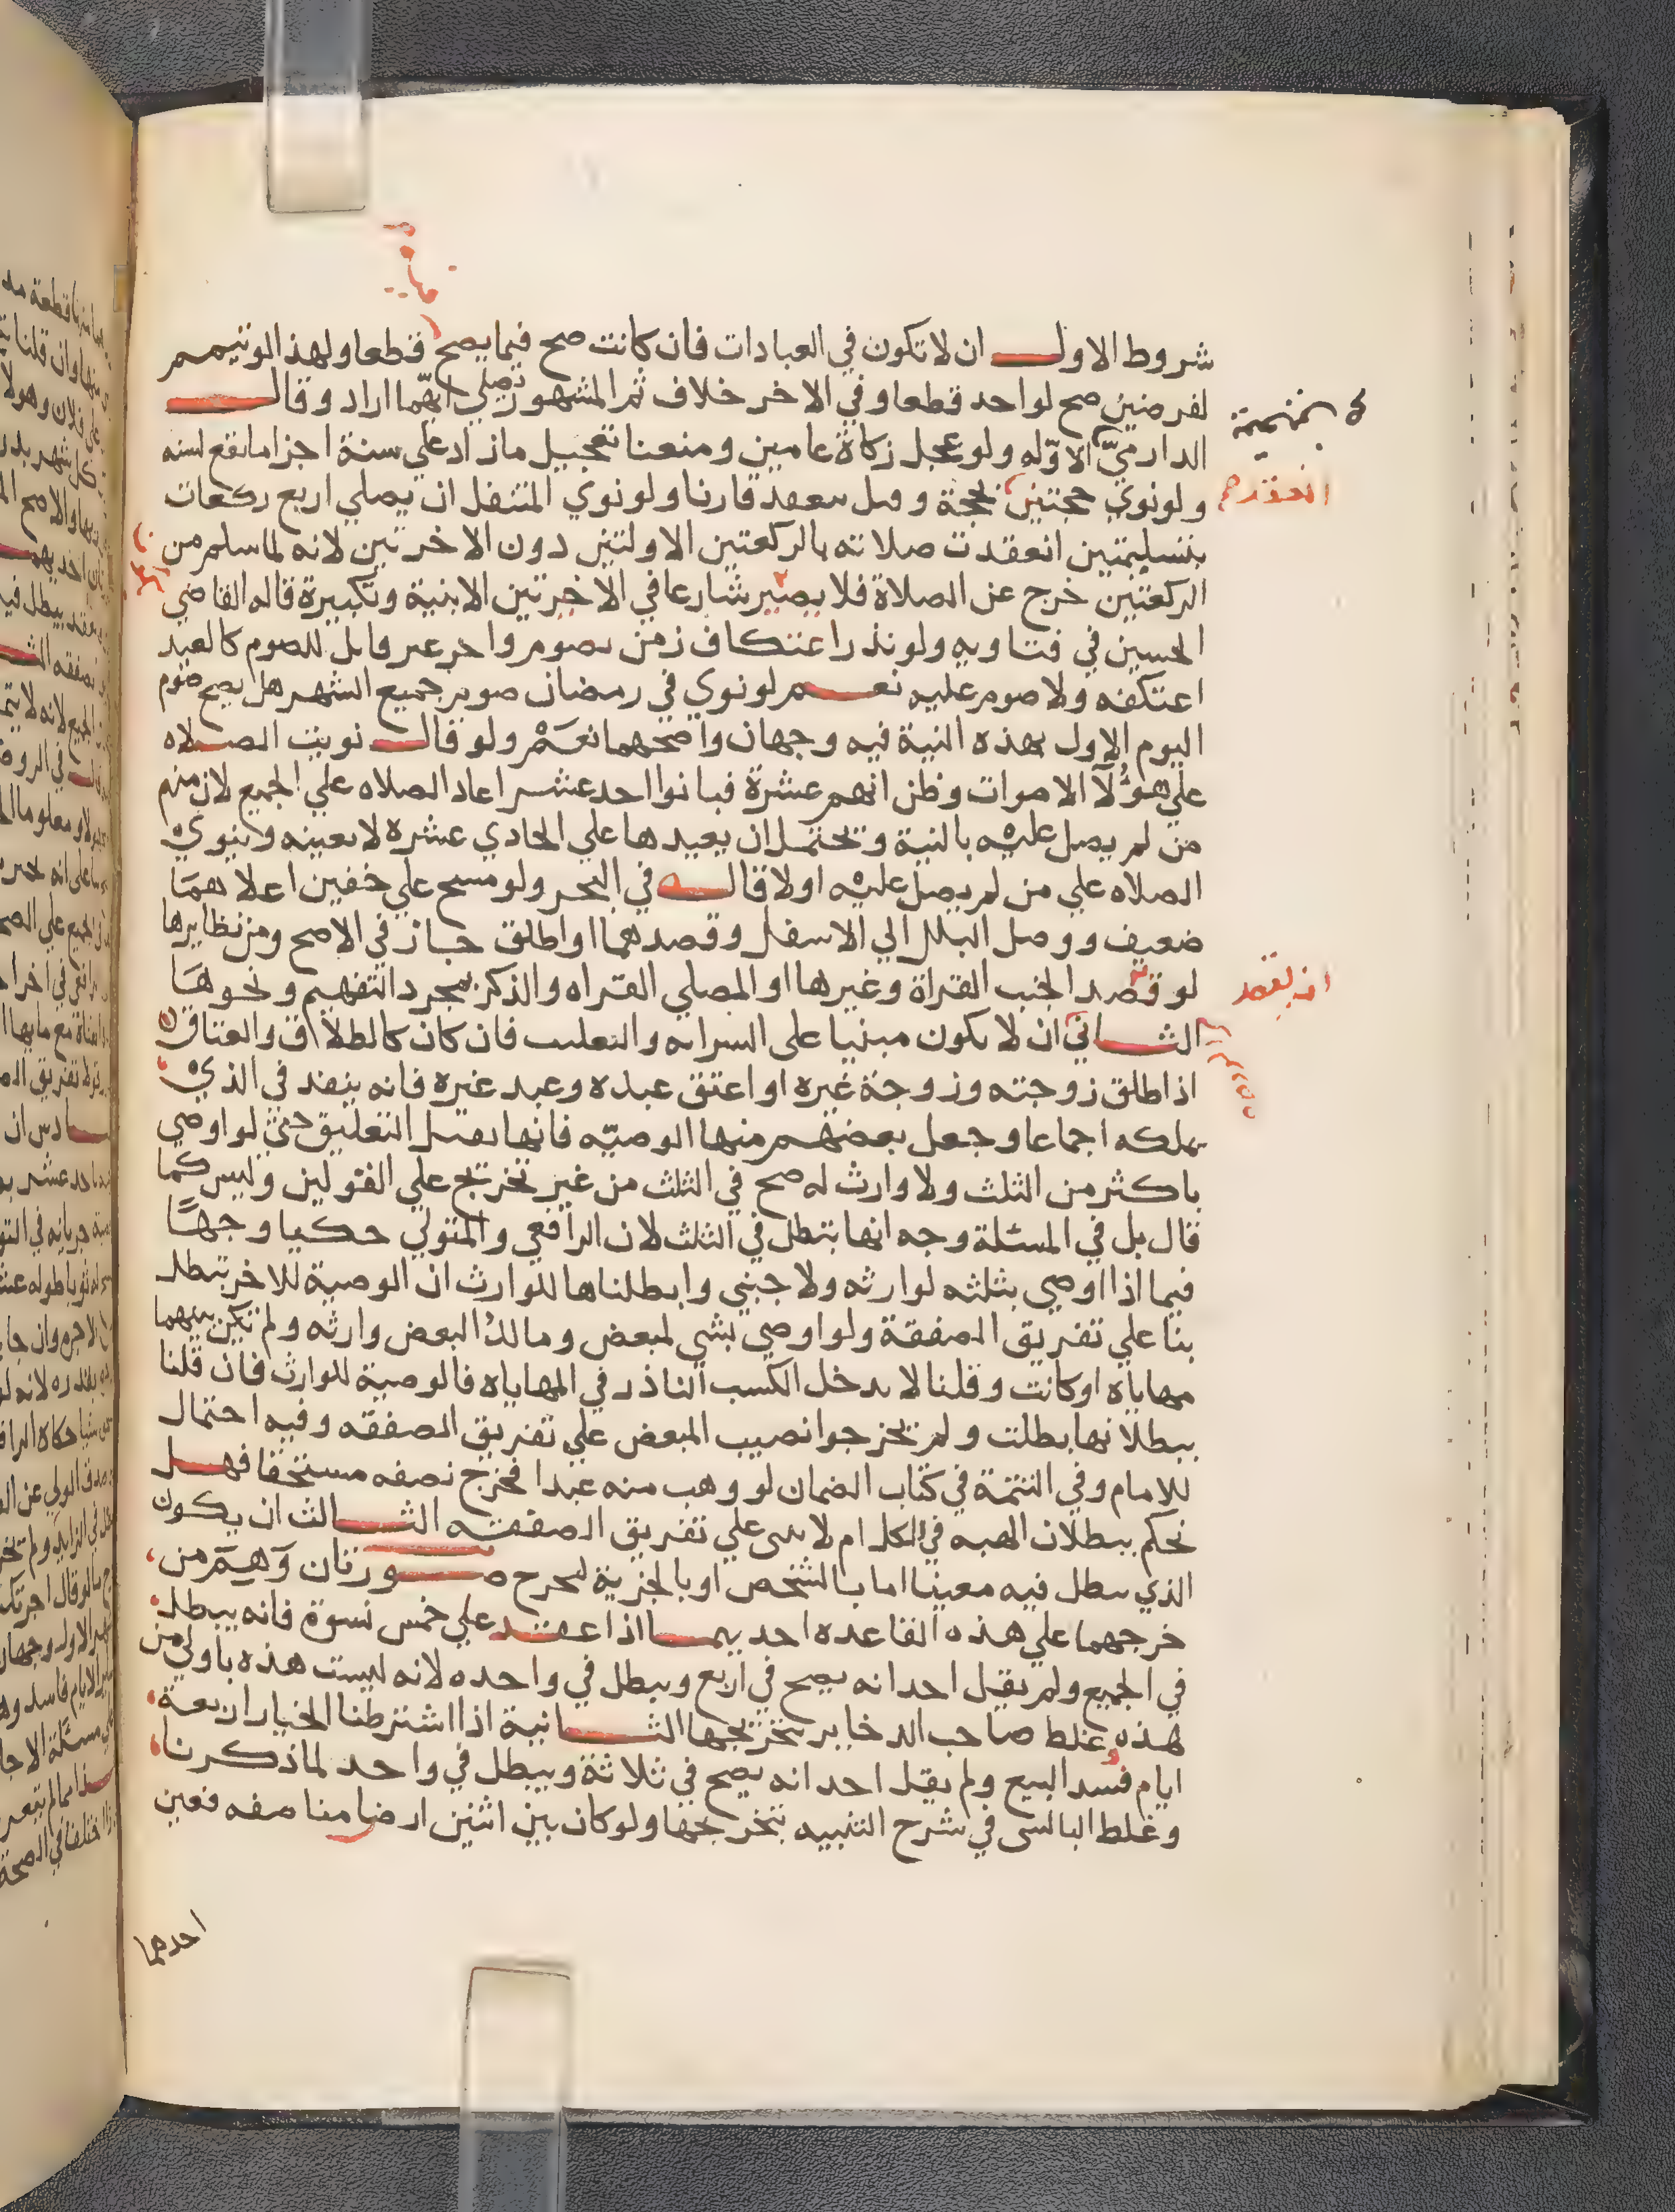 شروط الاول ان لا تكون في العبادات فان كانت صح فيما يصح قطعا ولهذا لو تيمم
لفرضين صح لواحد قطعا وفي الاخر خلاف ثم المشهور يصلي ايهما اراد وقال
الدارمي الاوله ولو عجل زكاة عامين ومنعنا تعجيل مازاد علي سنة اجزا مايقع لسنه
ولو نوي حجتين بحجة وهل سعقد قارنا ولو نوي المتنفل ان يصلي اربع ركعات
بتسليمتين انعقدت صلاته بالركعتين الاولتين دون الاخرتين لانه لما سلم من
الركعتين خرج عن الصلاة فلا يصير شارعا في الاخرتين الا بنية وتكبيرة قاله القاضي
الحسين في فتاويه ولو نذر اعتكاف زمن بصوم واخر غير قابل للصوم كالعيد
اعتكفه ولا صوم عليه نعم لو نوي في رمضان صوم جميع الشهر هل يصح صوم
اليوم الاول بهذه النية فيه وجهان واصحهما نعم ولو قال نويت الصلاه
علي هؤلآ الاموات وظن انهم عشرة فبانوا احد عشر اعاد الصلاه علي الجميع لان منهم
من لم يصل عليه بالنية ويحتمل ان يعيدها علي الحادي عشره لا بعينه وينوي
الصلاه علي من لم يصل عليه اولا قاله في البحر ولو مسح علي خفين اعلاهما
ضعيف ووصل البلل الي الاسفل وقصدهما او اطلق جاز في الاصح ومن نظايرها
لو قصد الجنب القراة وغيرها او المصلي القراه والذكر بمجرد التفهيم ونحوها
الثاني ان لا يكون مبنيا على السرايه والتعليب فان كان كالطلاق والعتاق
اذا طلق زوجته وزوجة غيره او اعتق عبده وعبد غيره فانه ينفذ في الذي
يملكه اجماعا وجعل بعضهم منها الوصيه فانها تقبل التعليق حتي لو اوصي
باكثر من الثلث ولا وارث له صح في الثلث من غير تخريج علي القولين وليس كما
قال بل في المسئلة وجه انها تبطل في الثلث لان الرافعي والمتولي حكيا وجها
فيما اذا اوصي بثلثه لوارثه ولاجنبي وابطلناها للوارث ان الوصية للاخر تبطل
بنا علي تفريق الصفقة ولو اوصي بشي لمبعض ومالك البعض وارثه ولم تكن بينهما
مهاياة او كانت وقلنا لا يدخل الكسب النادر في المهاياه فالوصية للوارث فان قلنا
ببطلانها بطلت ولم يخرجوا نصيب المبعض علي تفريق الصفقه وفيه احتمال
للامام وفي التتمة في كتاب الضمان لو وهب منه عبدا فخرج نصفه مستحقا فهل
نحكم ببطلان الهبه في الكل ام لا ىىى علي تفريق الصفقه الثالث ان يكون
الذي يبطل فيه معينا اما بالشخص او بالجزية ليخرج صورتان وهم من
خرجهما علي هذه القاعده احديهما اذا عقد علي خمس نسوة فانه يبطل
في الجميع ولم يقل احد انه يصح في اربع ويبطل في واحده لانه ليست هذه باولي من
هذه وغلط صاحب الدخاير بتخريجها الثانية اذا اشترطنا الخيار اربعة
ايام فسد البيع ولم يقل احد انه يصح في ثلاثة ويبطل في واحد لما ذكرنا
وغلط البالسى في شرح التنبيه بتخريجها ولو كان بين اثنين ارض مناصفه فعين
احدهما